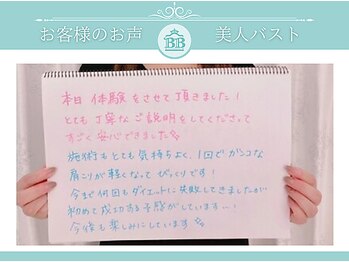 お客様のお声 BB 美人バスト
本日 体験をさせて頂きました！
とても丁寧なご説明をしてくださって
すごく安心できました
施術もとても気持ちよく、1回でガンコな
肩こりが軽くなって びっくりです！
今まで何回もダイエットに失敗してきましたが
初めて成功する予感がしています…！
今後も楽しみにしています